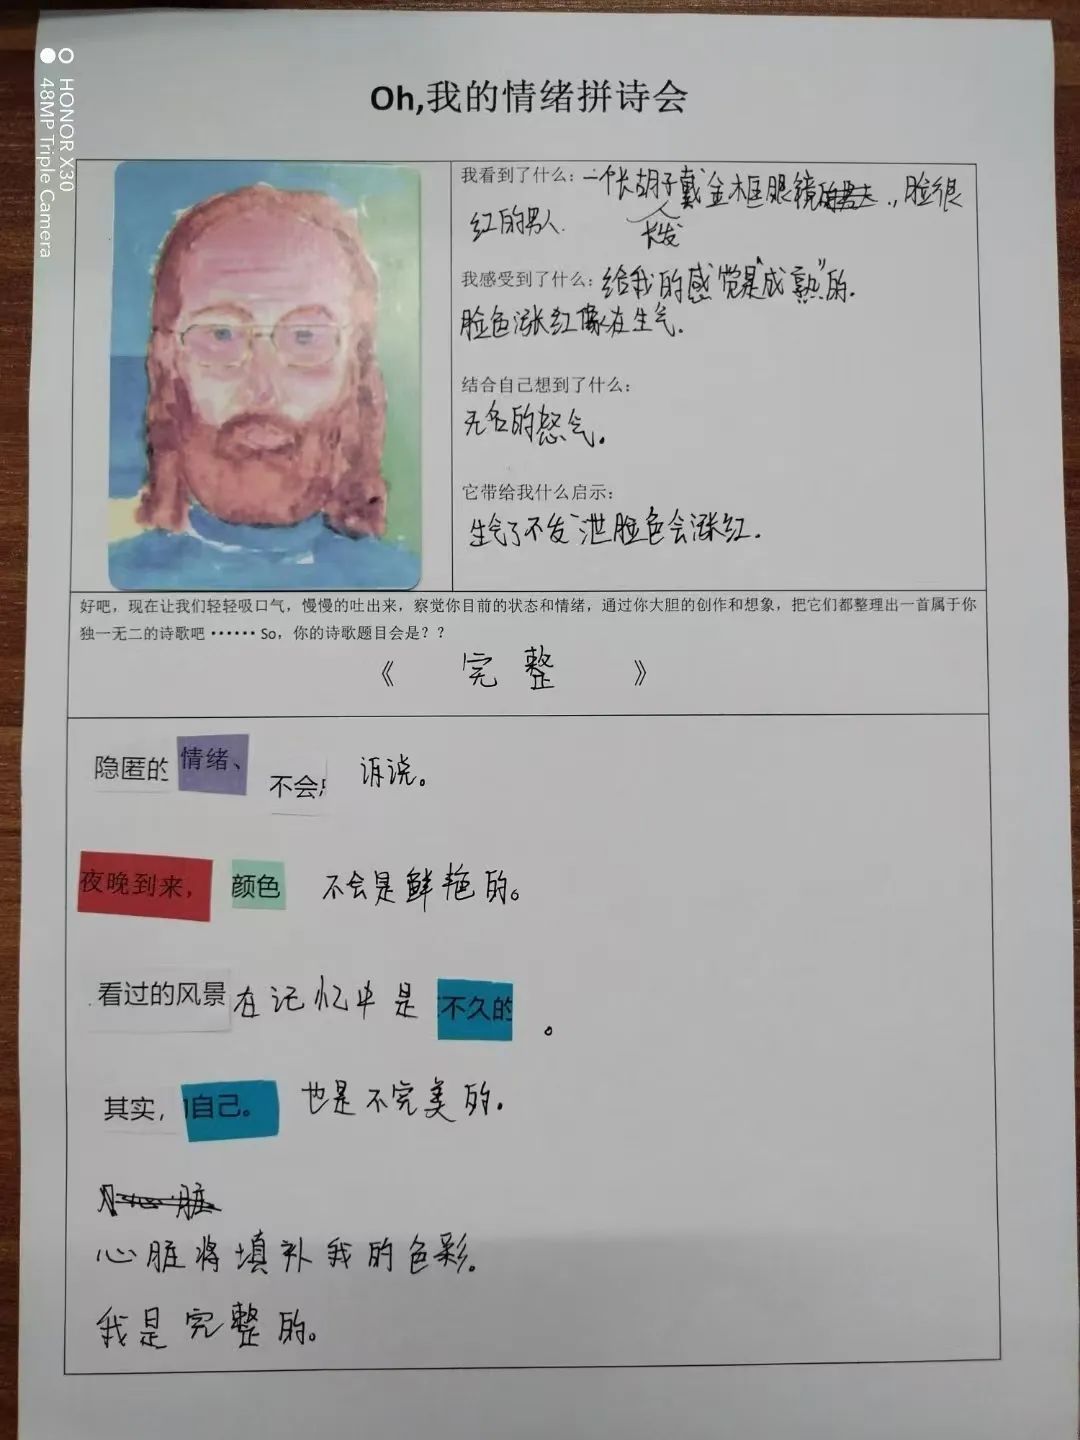 HONOR X30
48MP Triple Camera
Oh,我的情绪拼诗会
我看到了什么：一个长胡子戴金木框眼镜，脸很
长发
红的男人.
我感受到了什么：给我的感觉是"成熟"的.
脸色涨红像在生气.
结合自己想到了什么：
无名的怒气。
它带给我什么启示：
生气了不发泄脸色会涨红.
好吧，现在让我们轻轻吸口气，慢慢的吐出来，察觉你目前的状态和情绪，通过你大胆的创作和想象，把它们都整理出一首属于你
独一无二的诗歌吧 ······ So，你的诗歌题目会是？？
《 完整 》
隐匿的 情绪、 不会 诉说。
夜晚到来， 颜色 不会是鲜艳的。
看过的风景 在记忆中是 不久的 。
其实， 自己。 也是不完美的.
心脏
心脏将填补我的色彩.
我是完整的。